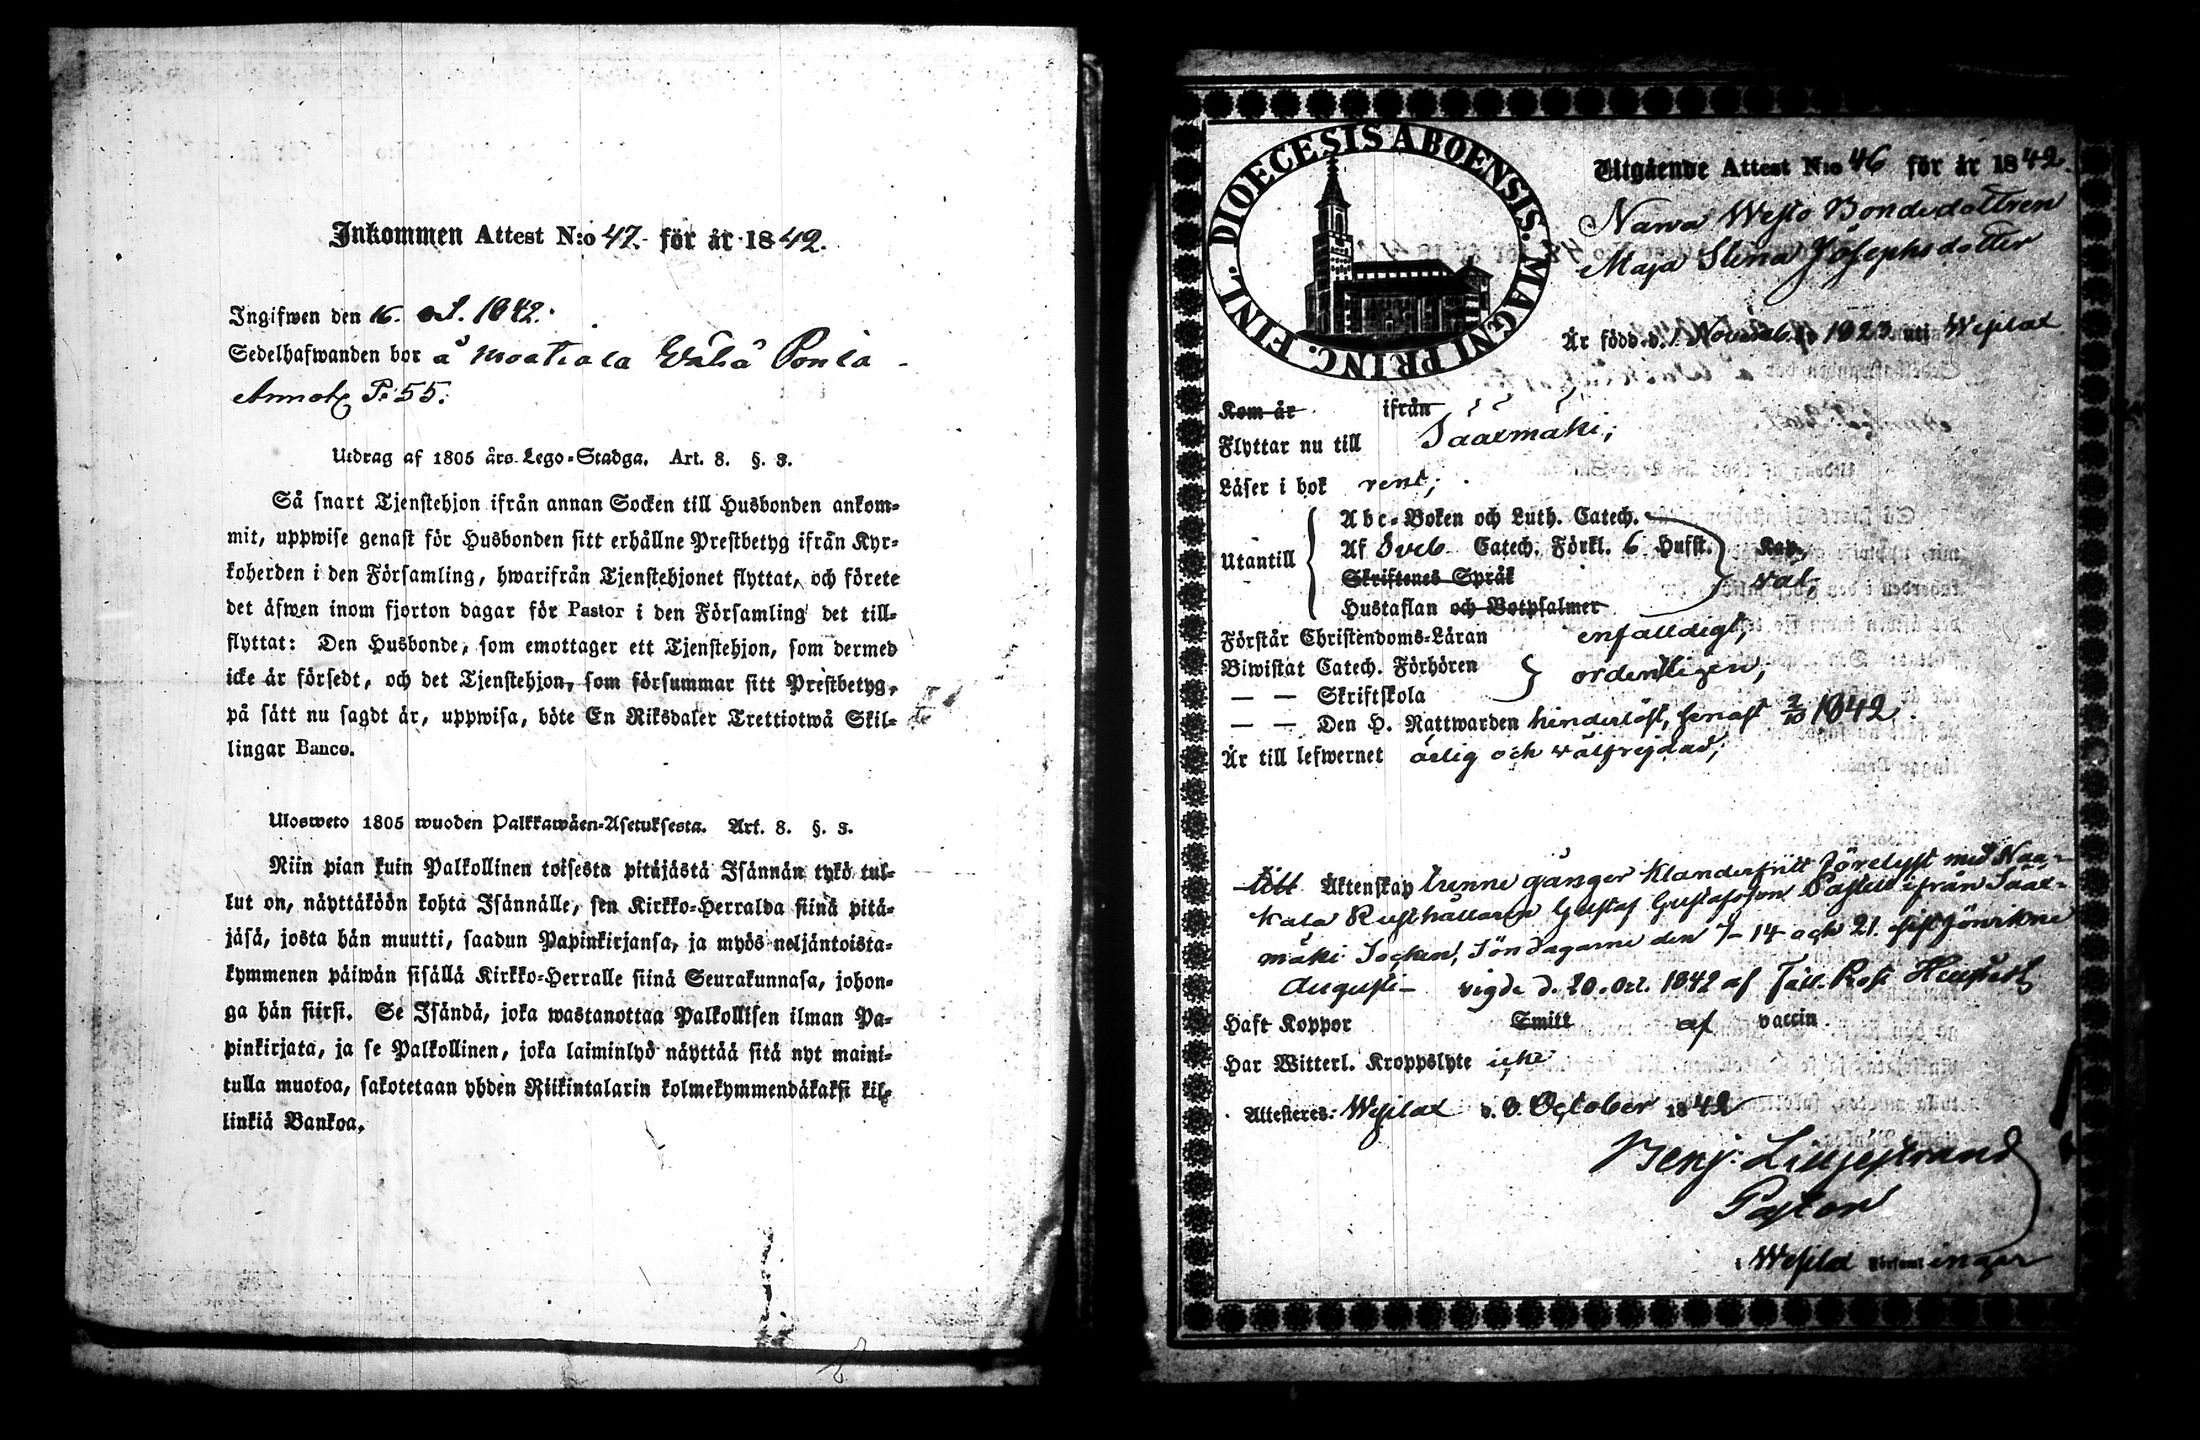 Inkommen Attest N:o 47. för år 1842.
Ingifwen den 16. oct. 1842.
Sedelhafwanden bor å Moatiala Wähä Ponsa
Annot. P. 55.
Utdrag af 1805 års Lego-Stadga. Art. 8. §. 3.
Så snart Tjenstehjon ifrån annan Socken till Husbonden ankom-
mit, uppwise genast för Husbonden sitt erhållne Prestbetyg ifrån Kyr-
koherden i den Församling, hwarifrån Tjenstehjonet flyttat, och förete
det äfwen inom fjorton dagar för Pastor i den Församling det till-
flyttat: Den Husbonde, som emottager ett Tjenstehjon, som dermed
icke är försedt, och det Tjenstehjon, som försummar sitt Prestbetyg,
på sätt nu sagdt är, uppwisa, böte En Riksdaler Trettiotwå Skil-
lingar Banco.
Ulosweto 1805 wuoden Palkkawäen-Asetuksesta. Art. 8. §. 3.
Niin pian kuin Palkollinen toisesta pitäjästä Isännän tykö tul-
lut on, näyttäköön kohta Isännälle, sen Kirkko-Herralda siinä pitä-
jäsä, josta hän muutti, saadun Papinkirjansa, ja myös neljäntoista-
kymmenen päiwän sisällä Kirkko-Herralle siinä Seurakunnasa, johon-
ga hän siirsi. Se Isändä, joka wastanottaa Palkollisen ilman Pa-
pinkirjata, ja se Palkollinen, joka laiminlyö näyttää sitä nyt maini-
tulla muotoa, sakotetaan yhden Riikintalarin kolmekymmendäkaksi kil-
linkiä Bankoa.
DIOECESIS ABOENSIS. MAGNI PRINC. FINL.
Utgående Attest N:o 46 för år 1842.
Narva Westo Bondedottren
Maja Stina Josephsdotter
Är född d. 1 Novemb. 1823 uti Wesilax
Kom år ifrån
Flyttar nu till Säärmäki;
Läser i bok rent;
Utantill
Abc-Boken och Luth. Catech.
Af Sveb. Catech. Förkl. 6 Hufst. Kap.
Skriftenes Språk val;
Hustaflan och Botpsalmer
Förstår Christendoms-Läran enfalldigt;
Biwistat Catech. Förhören ordentligen;
— — Skriftskola
— — Den H. Nattwarden hinderlöst, senast 2/10 1842.
Är till lefwernet ärlig och välfrejdad;
Till Äktenskap trenne gånger klanderfritt förelyst med Naa-
kala Rusthållaren Gustaf Gustafsson ifrån Säär-
mäki Socken, Söndagarne den 7- 14 och 21. sistförvikne
Augusti- vigde d. 20. Oct. 1842 af
Haft Koppor Smitt af vaccin
Har Witterl. Kroppslyte icke
Attesteres: Wesilax d. 8 October 1842
Benj: Liljestrand
Pastor
i Wesilax Församlingar